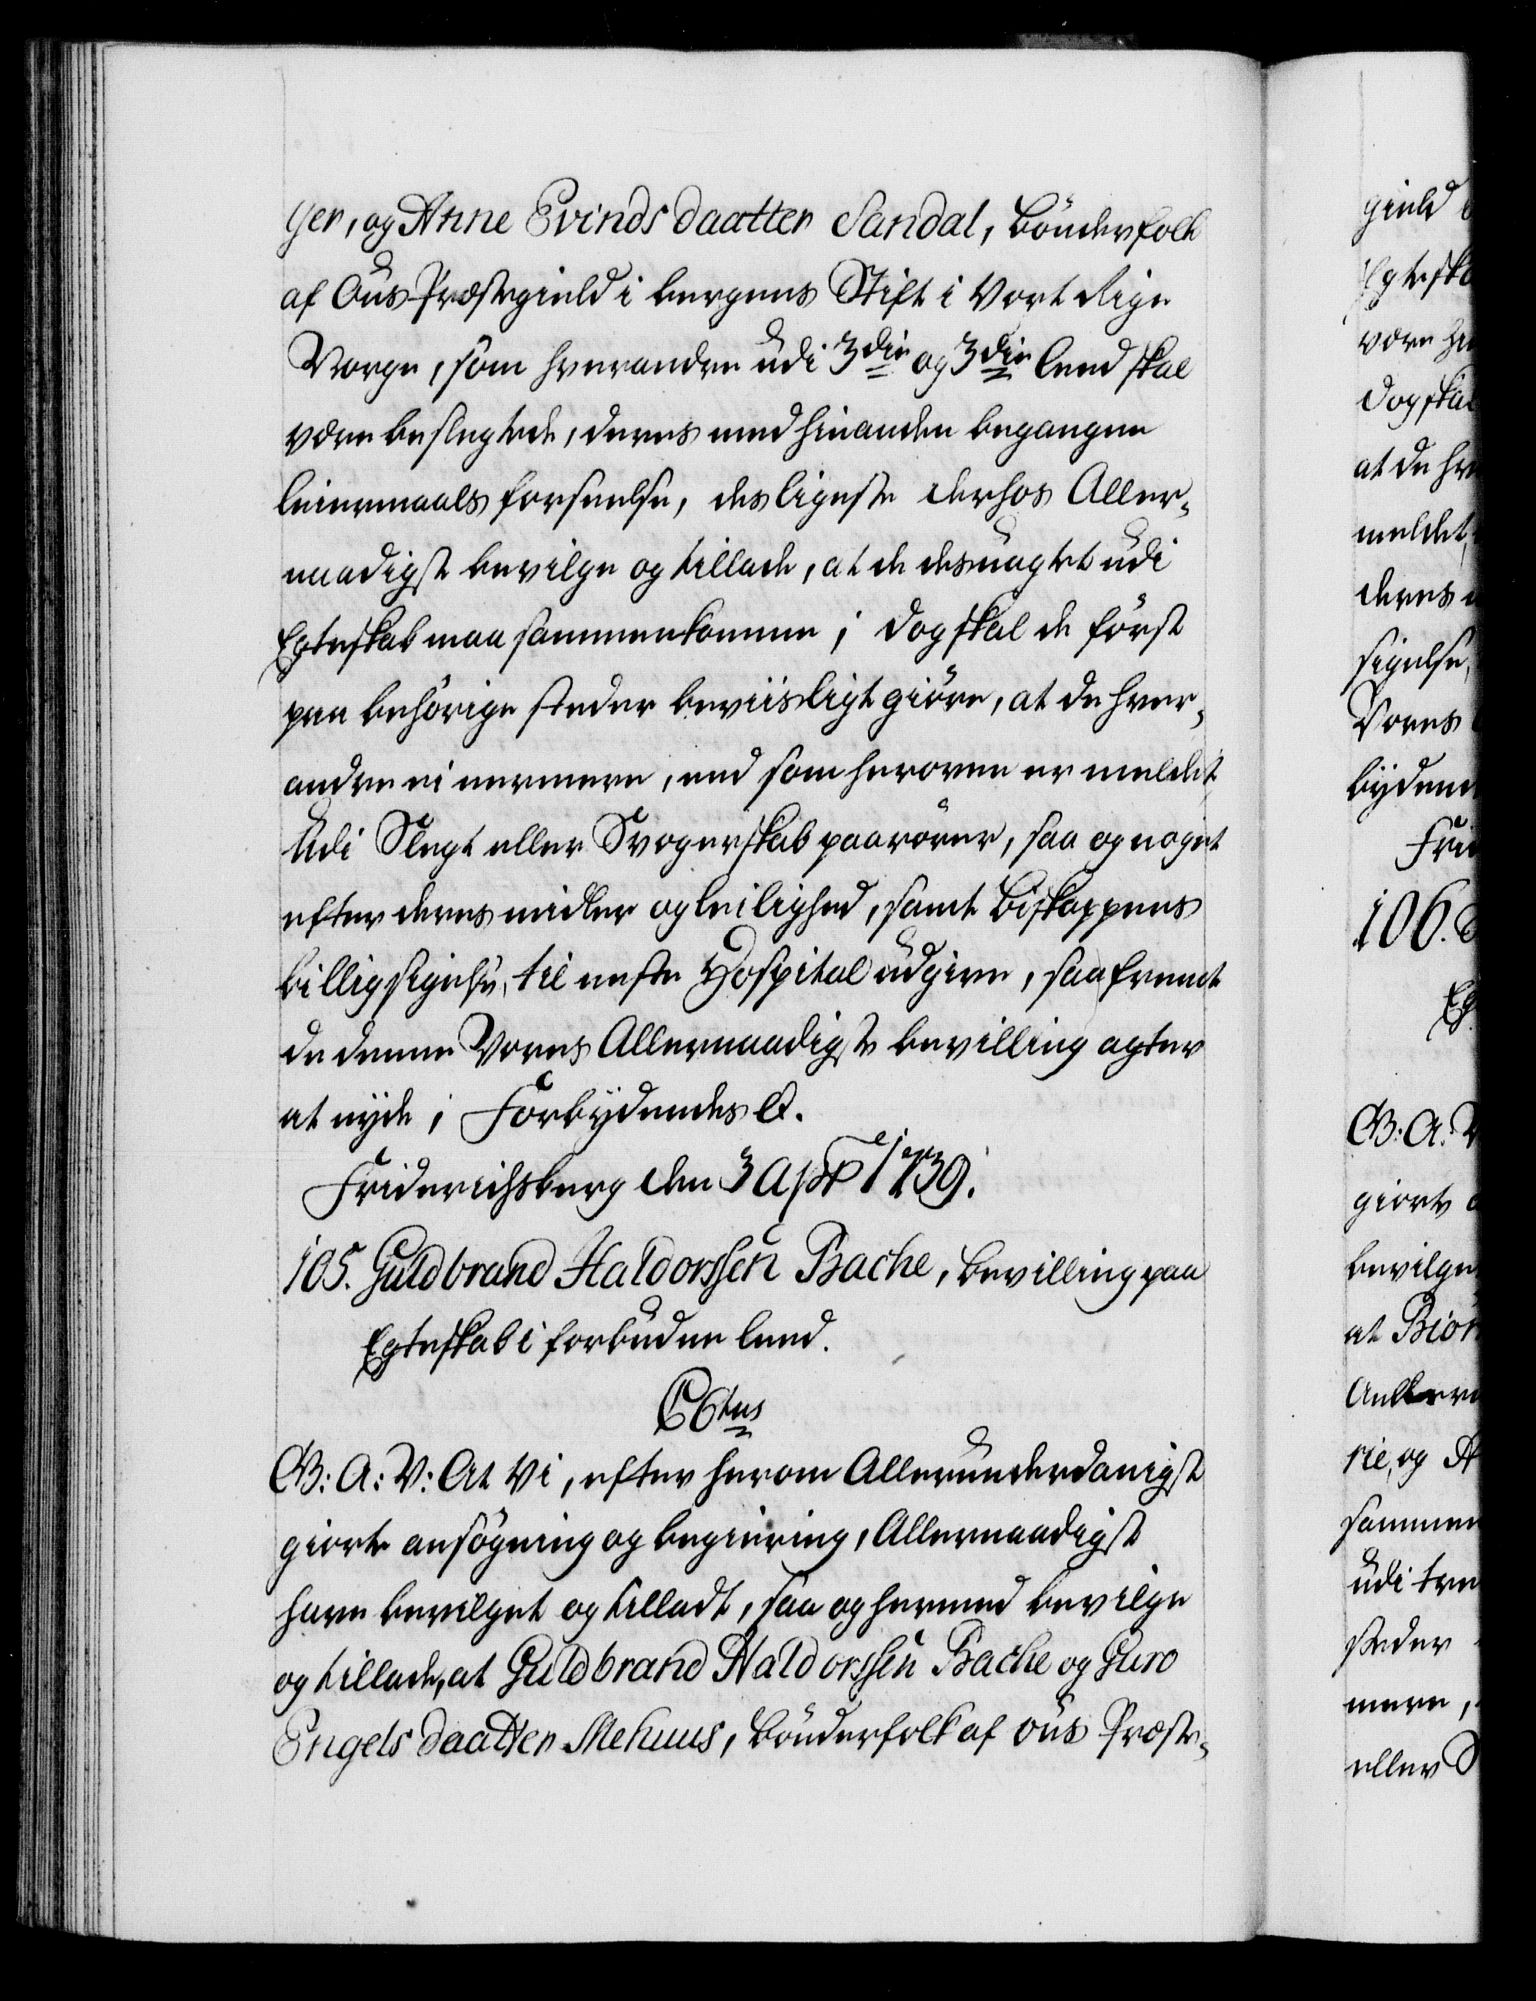 ger, og Anne Evinds daatter Sandal, bönderfolk
af Ous Præstegield i bergens Stift i Vort Rige
Norge, som hverandre udi 3die og 3die leed skal
være beslegtede, deres med hinanden begangne
leiermaals forseelse, desligeste derhos Aller-
naadigst bevilge og tillade, at de desuagtet udi
Egteskab maa sammenkomme; dog skal de först
paa behörige steder beviisligt giöre, at de hver-
andre ei nermere, end som heroven er meldet,
Udi Slegt eller Svogerskab paarörer, saa og noget
efter deres midler og leilighed, samt biskoppens
billigsigelse, til neste Hospital udgive, saafremt
de denne Vores Allernaadigste bevilling agter
at nyde; Forbydendes &.
Friderichsberg den 3 April 1739.
105. Guldbrand Haldorssen Bache, bevilling paa
Egteskab i forbuden leed.
C 6tus
G: A: V: At Vi, efter herom Allerunderdanigst
giorte ansögning og begiering, Allernaadigst
have bevilget og tilladt, saa og hermed bevilge
og tillade, at Guldbrand Haldorssen Bache og Guro
Engels daatter Mehuus, bönderfolk af ous Præste-
gield
Egteska
være
dog skal
at de hv
meldet,
deres
sigelse,
Vores
bydend
Fri
106.
Eg
G: A: V
giorte
bevilge
at Biör
rie, og A
sammen
udi tre
steder
mere,
eller S